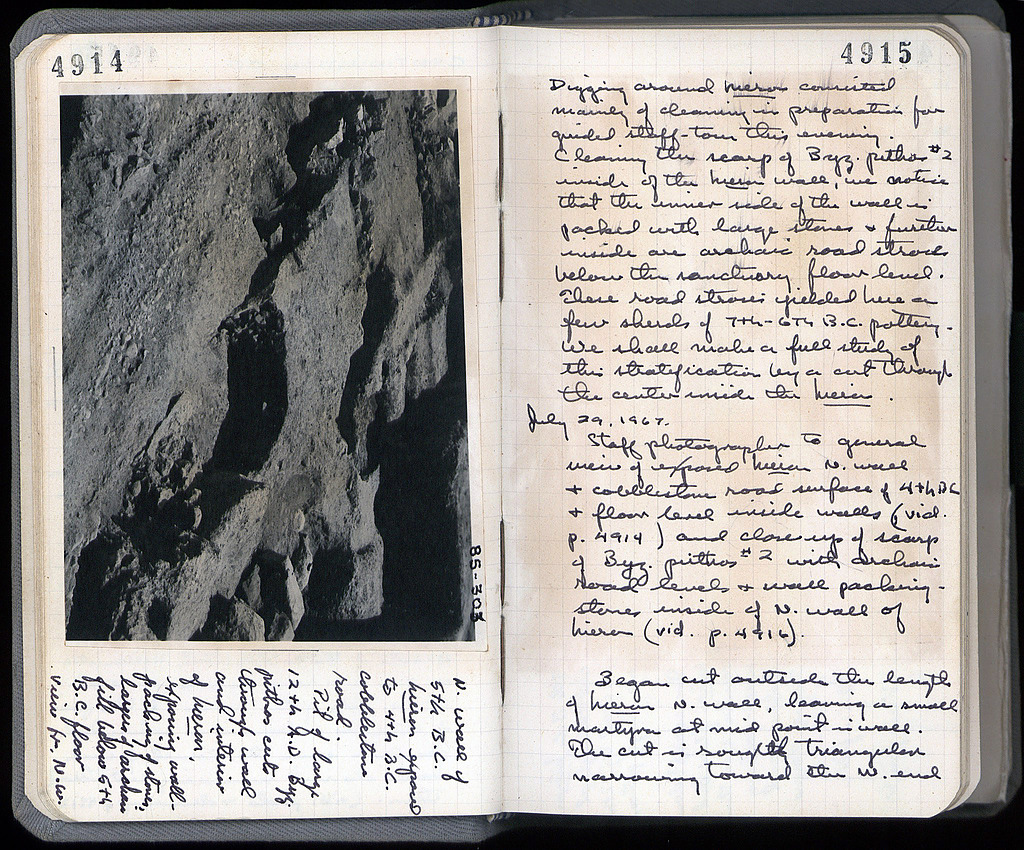 4914
85-303
N. wall of
5th B.C.
hieron exposed
to 4th B.C.
cobblestone
road.
Pit of large
12th A.D. Byz.
pithos cuts
through wall
and interior
of hieron,
exposing wall-
packing of stones;
larger of Archaic
fill below 5th
B.C. floor
view fr. N.W.
4915
Digging around hieron consisted
mainly of cleaning in preparation for
guided staff-tour this evening.
Cleaning the scarp of Byz. pithos #2
inside of the hieron wall, we notice
that the inner side of the wall is
packed with large stones + further
inside are archaic road stroses
below the sanctuary floor level.
These road stroses yielded here a
few sherds of 7th-6th B.C. pottery.
We shall make a full study of
this stratification by a cut through
the center inside the hieron.
July 29, 1967.
Staff photographer to general
view of exposed hieron N. wall
+ cobblestone road surface of 4th BC
+ floor level inside walls (vid.
p. 4914) and close up of scarp
of Byz. pithos #2 with archaic
road levels + wall packing-
stones inside of N. wall of
hieron (vid. p. 4916).
Began cut outside the length
of hieron N. wall, leaving a small
martyra at mid point in wall.
The cut is roughly triangular
narrowing toward the W. end